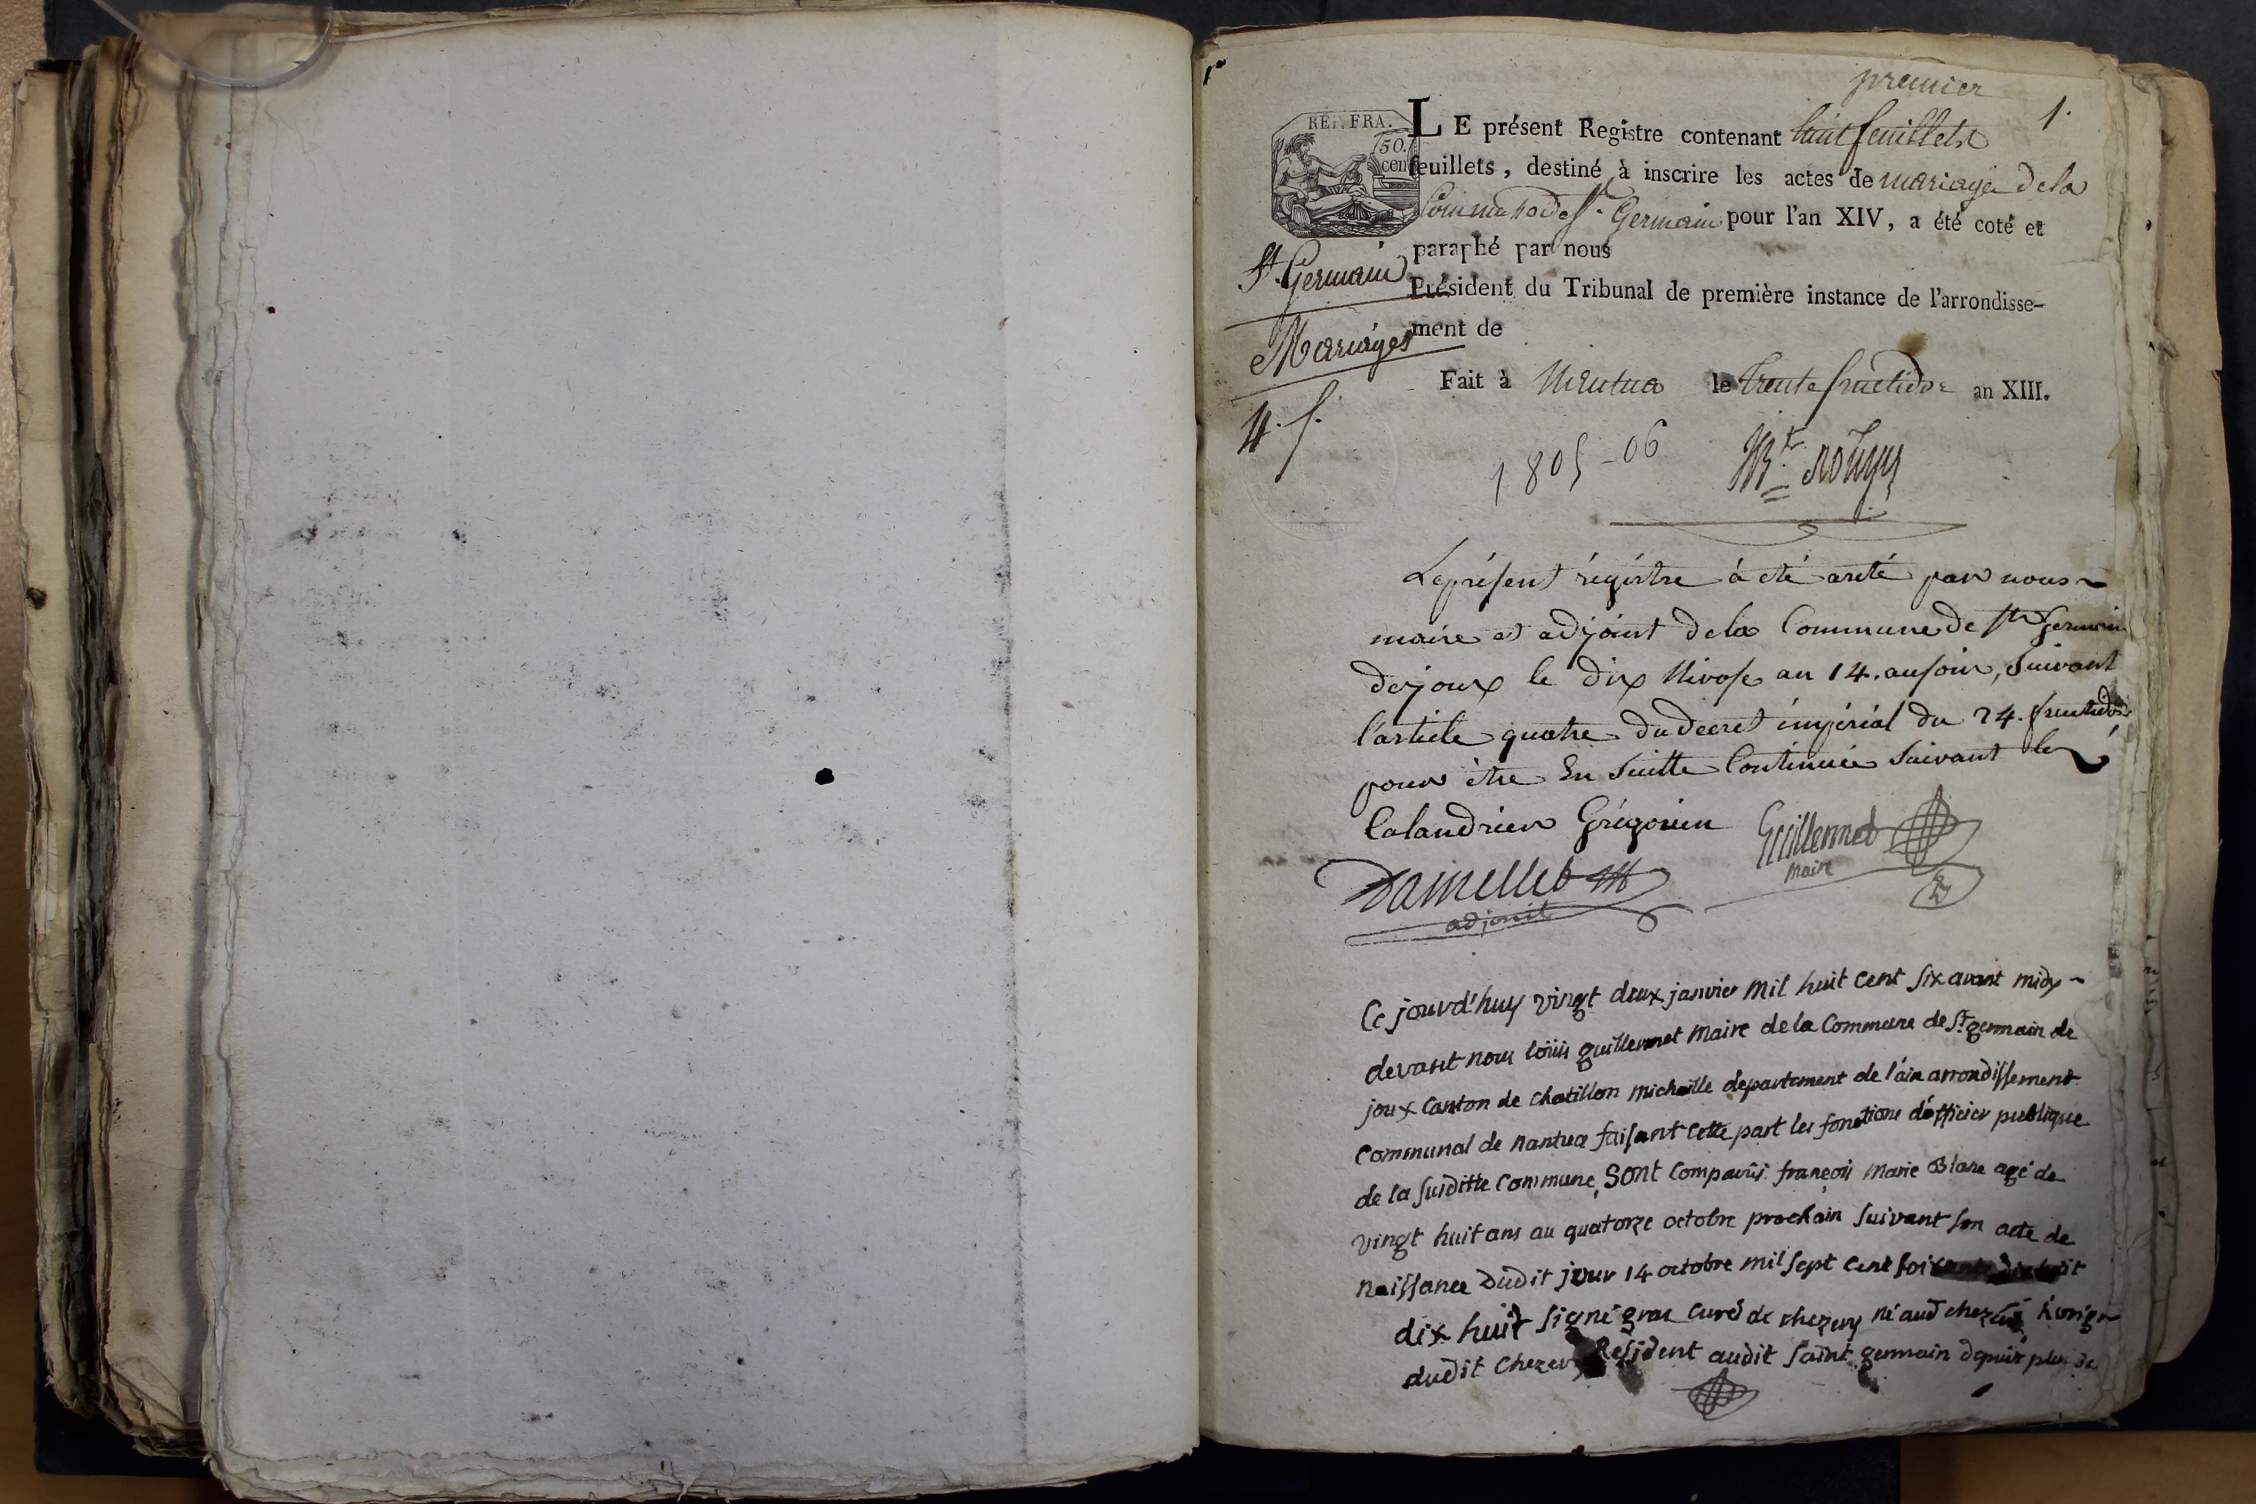 1r
premier
1.
REP. FRA.
50.
cen
LE présent Registre contenant huit feuillets
feuillets, destiné à inscrire les actes de mariage dela
Commune de St. Germain pour l'an XIV, a été coté et
paraphé par nous
St. Germain
Président du Tribunal de première instance de l'arrondisse-
ment de
Mariages
Fait à Nantua le trente fructidor an XIII.
4. f.
1805-06
Le présent régistre à été arété par nous
maire et adjoint dela Commune de St Germain
dejoux le dix Nivose an 14. au soir, Suivant
l'article quatre du decret impérial du 24. fructidor
pour être En Suitte Continuée Suivant le
Calandrier Grégorien
Guillermet
maire
adjoint
Ce jourd'huy vingt deux janvier mil huit cent six avant midy
devant nous loüis guillermet maire de la Commune de St germain de
joux Canton de chatillon michaille departement de l'ain arrondissement
Communal de nantua faisant cette part les fonctions d'officier publique
de la susditte Commune, sont comparûs françois marie Blanc agé de
vingt huit ans au quatorze octobre prochain suivant son acte de
naissance dudit jour 14 octobre mil sept cent
dix huit signé gros curé de chezery né aud chezery
dudit chezery Resident audit saint germain depuis plus de